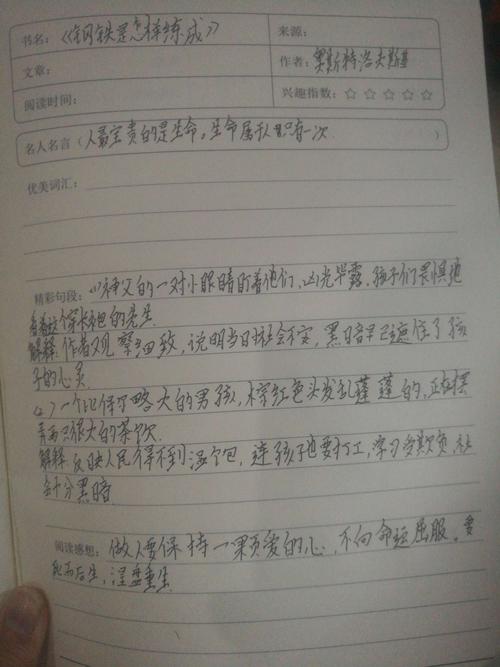 书名：《钢铁是怎样练成》
来源：
文章：
作者：奥斯特洛夫斯基
阅读时间：
兴趣指数：☆☆☆☆☆
名人名言（人最宝贵的是生命。生命属于人只有一次）
优美词汇：
精彩句段：（1）神父的一对小眼睛盯着他们，凶光毕露，孩子们畏惧地
看着这个穿长袍的先生
解释：作者观察细致，说明当时社会不安，黑暗早已遮住了孩
子的心灵
（2）一个比保尔略大的男孩，棕红色头发乱蓬蓬的，正在摆
弄两只很大的茶炊
解释 反映人民得不到温饱，连孩子也要打工，
会十分黑暗
阅读感想：做人要保持一颗爱的心，不向命运屈服。要
死而后生，涅盘重生